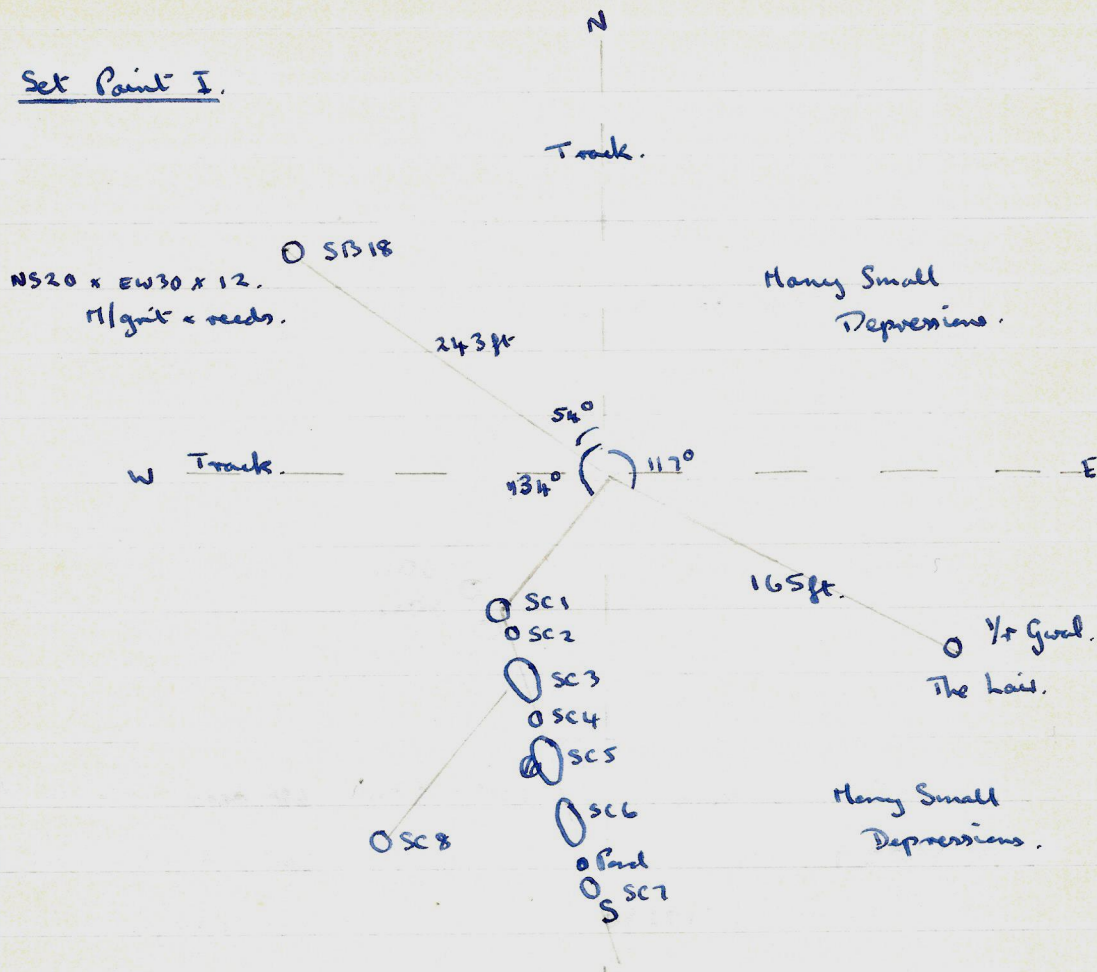 N
Set Point I.
Track.
SB18
NS20 x EW30 x 12.
M/grit & reeds.
243ft
Many Small
Depressions.
54°
W Track.
134°
117°
E
165ft.
SC1
SC2
SC3
SC4
SC5
SC6
SC8
Pond
SC7
S
Yr Gwal.
The Lair.
Many Small
Depressions.